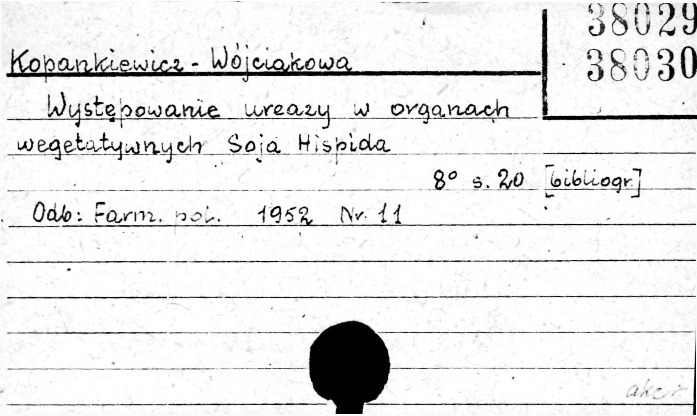 38029
38030
Kopankiewicz - Wójciakowa
Występowanie ureazy w organach
wegetatywnych Soja Hispida
8° s. 20 [bibliogr.]
Odb: Farm. pol. 1952 Nr. 11